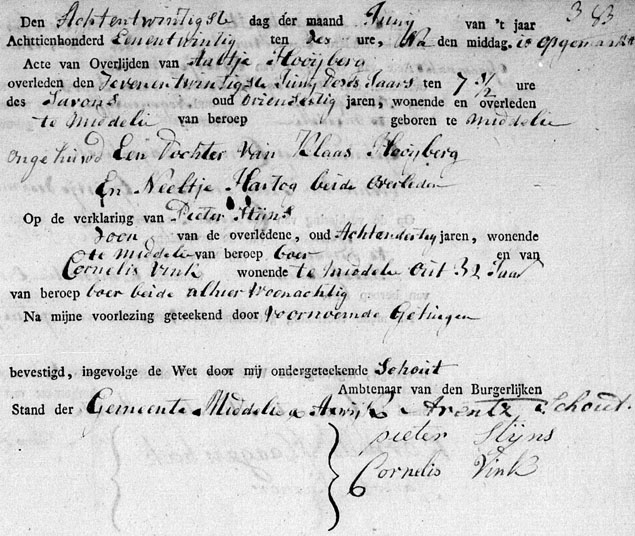 Den Achtentwintigst dag der maand Juny van 't jaar 383
Achttienhonderd Eenentwintig ten Ses ure, Na den middag is opgemaakt
Acte van Overlijden van Aaltje Hooyberg
overleden den Sevenentwintigste Juny deses Jaars ten 7 1/2 ure
des Savons oud Driendertig jaren, wonende en overleden
te Middelie van beroep geboren te Middelie
ongehuwd Een Dochter van Klaas Hooyberg
En Neeltje Hartog beide overleden
Op de verklaring van Pieter Stijns
Zoon van de overledene, oud Achtendertig jaren, wonende
te Middelie van beroep boer en van
Cornelis Vink wonende te Middelie out 32 Jaar
van beroep boer beide alhier woonachtig
Na mijne voorlezing geteekend door voornoemde Getuigen
bevestigd, ingevolge de Wet door mij ondergeteekende Schout
Ambtenaar van den Burgerlijken
Stand der Gemeente Middelie Schout.
pieter Stijns
Cornelis Vink